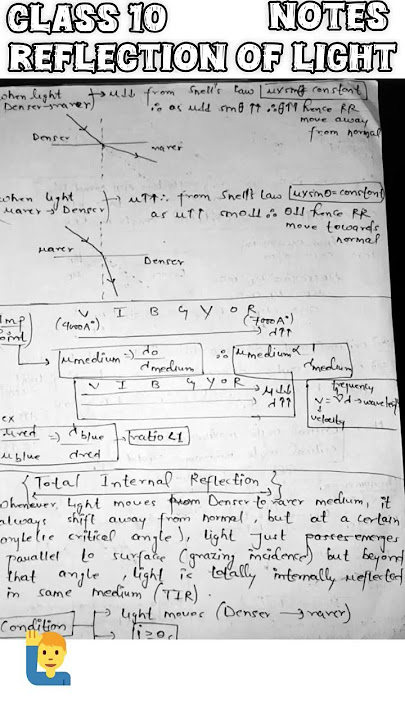 CLASS 10 NOTES
REFLECTION OF LIGHT
when light → μ↓↓ from Snell's Law [μ×sinθ constant]
Denser→rarer) ∴ as μ↓↓ sinθ↑↑ ∴θ↑↑ hence RR
move away
from normal
Denser
rarer
when light → μ↑↑ ∴ from Snell's Law [μ×sinθ=constant]
rarer → Denser as μ↑↑ sinθ↓↓ ∴ θ↓↓ hence RR
move towards
normal
rarer
Denser
Imp Point
V I B G Y O R
(4000A°) (7000A°)
λ↑↑
μmedium => λo/λmedium ∴ μmedium ∝ 1/λmedium
V I B G Y O R
μ↓↓
λ↑↑
frequency
v = νλ → wavele
velocity
ex
μred/μblue => λblue/λred → ratio<1
{ Total Internal Reflection }
whenever, light moves from Denser to rarer medium, it
always shift away from normal, but at a certain
angle (ie critical angle), light just passes emerges
parallel to surface (grazing incidence) but beyond
that angle, light is totally internally reflected
in same medium (TIR).
Condition → light moves (Denser → rarer)